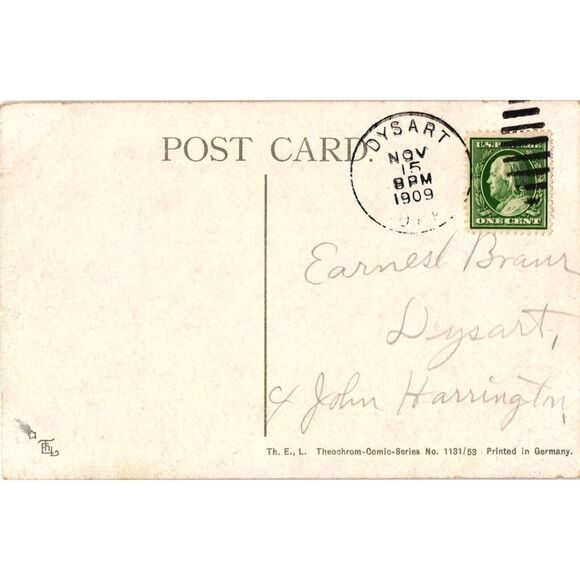 POST CARD.
DYSART
NOV
15
8 PM
1909
U.S. POSTAGE
ONE CENT
Earnest Braur
Dysart,
& John Harrington,
Th. E., L. Theochrom-Comic-Series No. 1131/53 Printed in Germany.